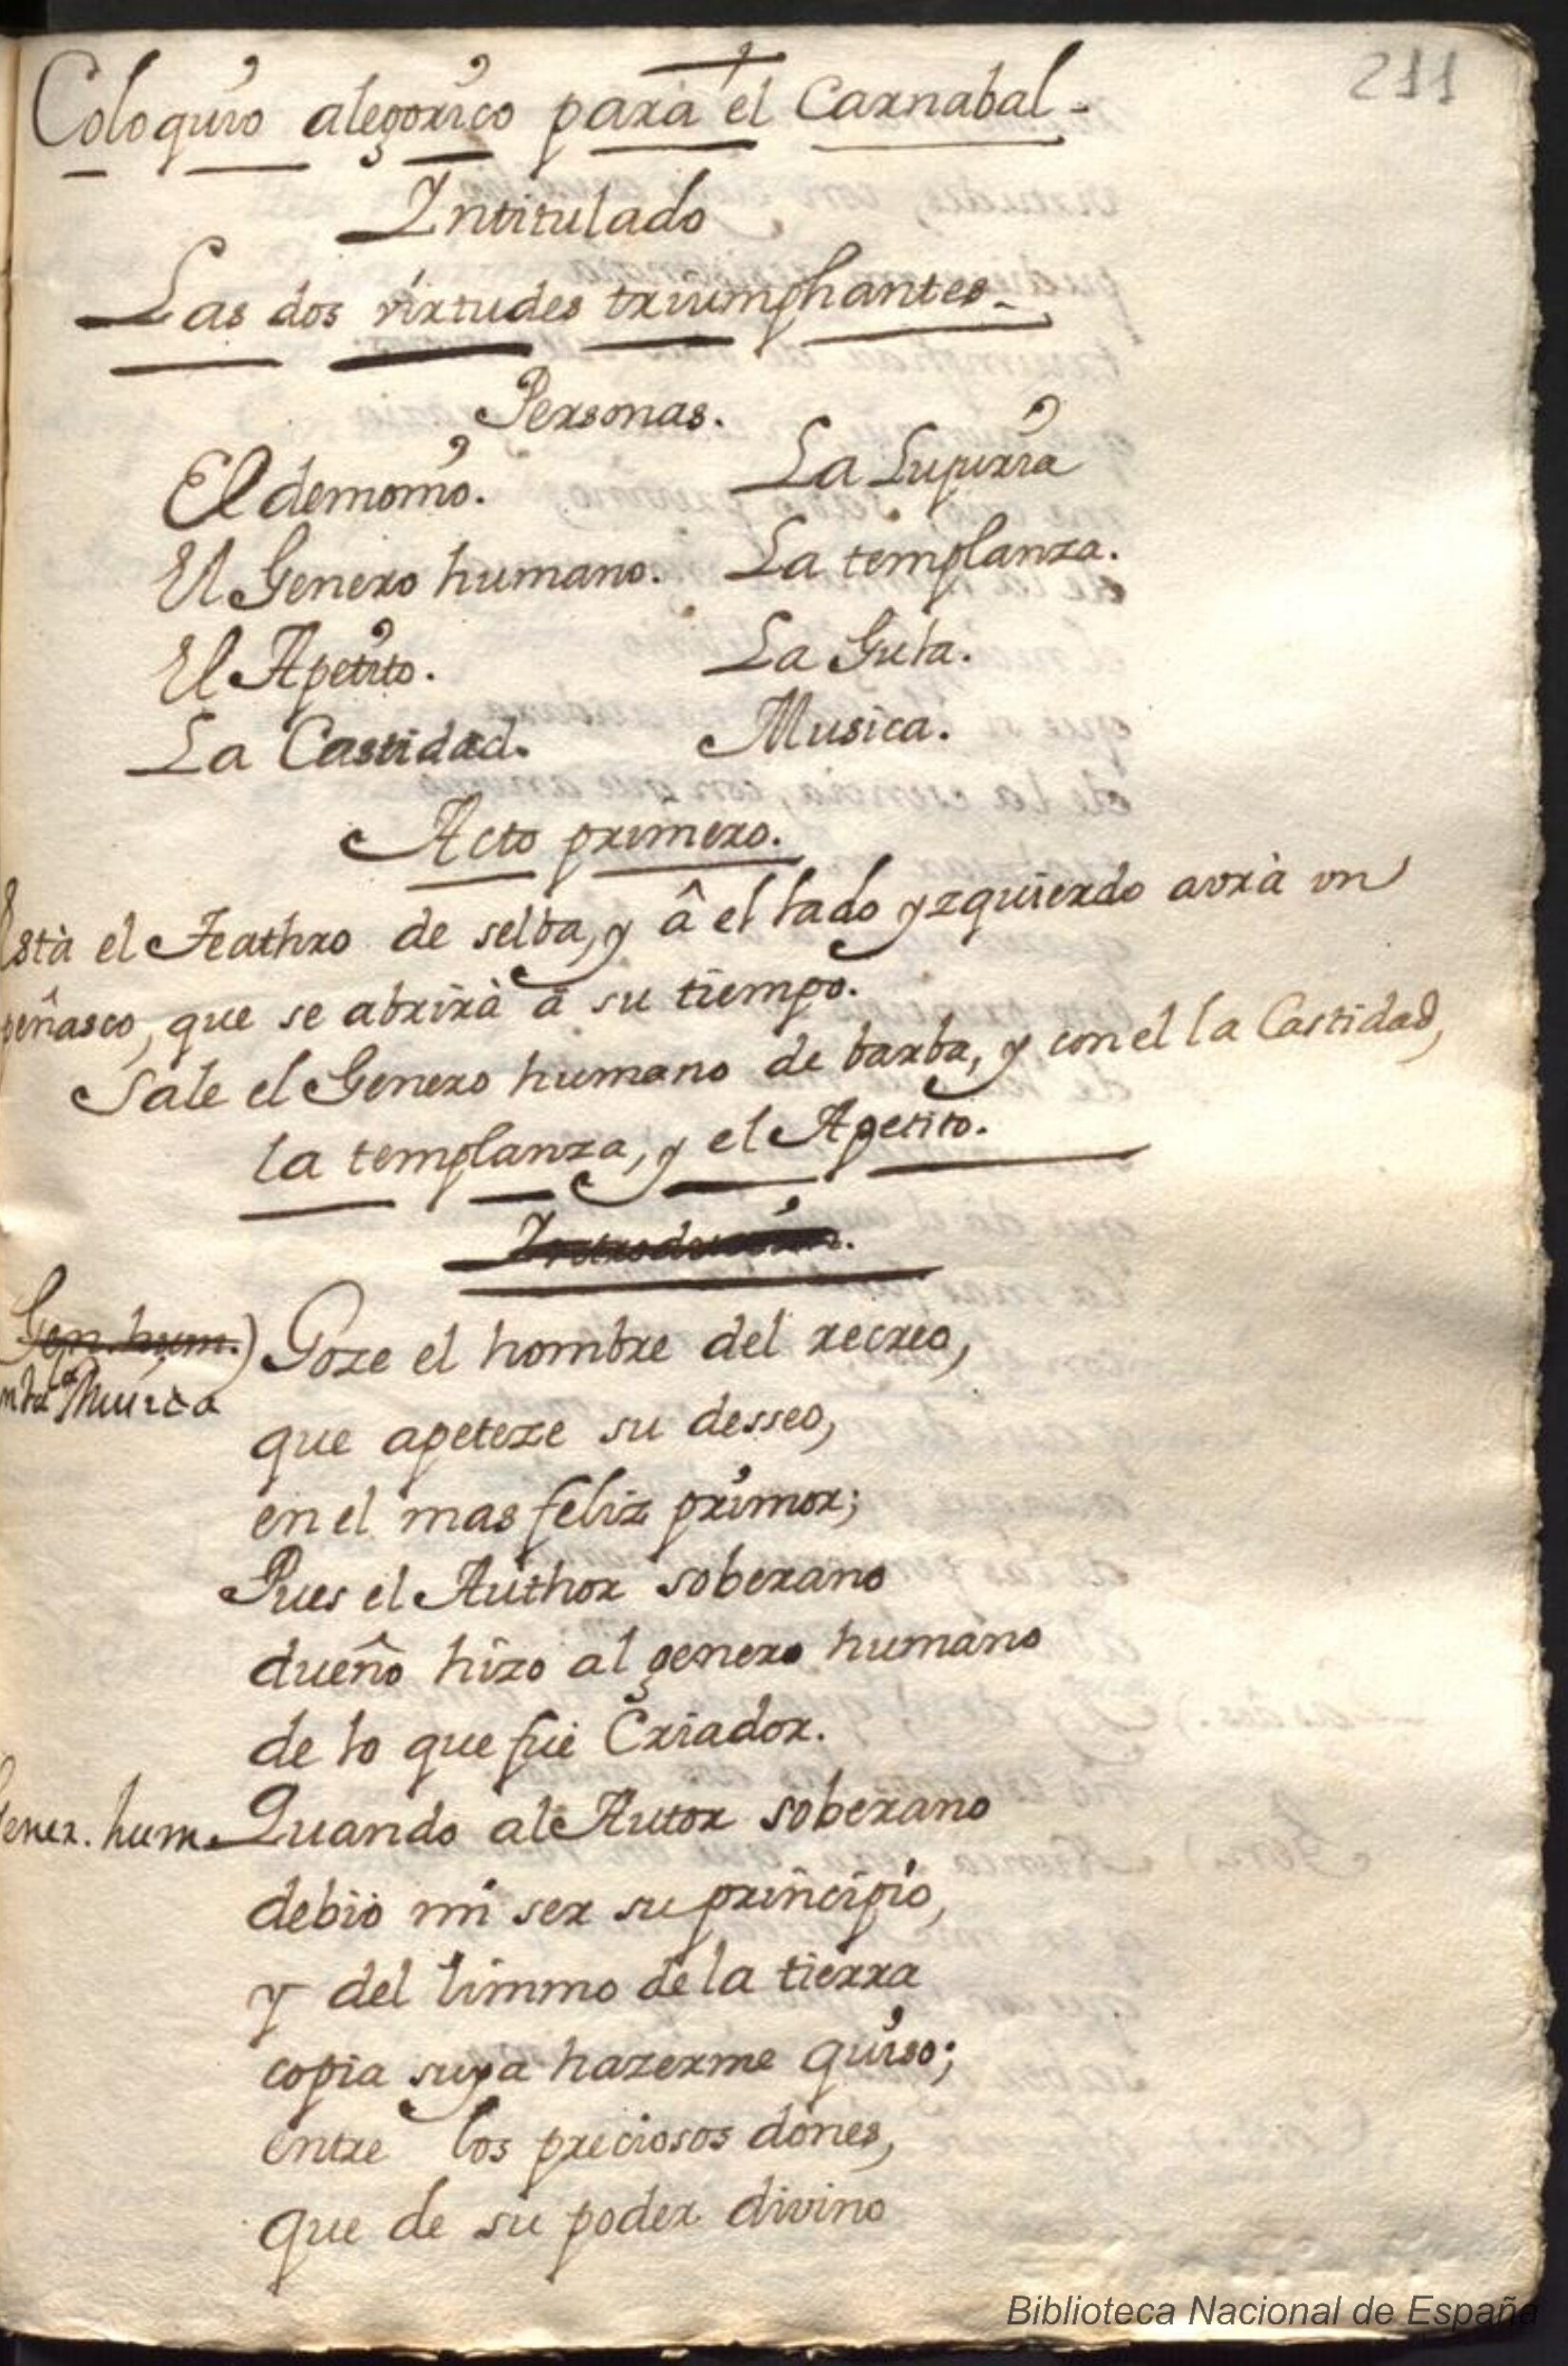 211
Coloquio alegorico para el Carnabal-
Intitulado
Las dos virtudes triumphantes-
Personas.
El demonio. La Lujuria
El Genero humano. La templanza.
El Apetito. La Gula.
La Castidad. Musica.
Acto primero.
Està el Teathro de selba, y â el lado yzquierdo avrà vn
peñasco, que se abrirà à su tiempo.
Sale el Genero humano de barba, y con el la Castidad,
la templanza, y el Apetito.
Introduccion.
Gen. hum.) Goze el hombre del recreo,
la Musica
que apeteze su desseo,
en el mas feliz primor;
Pues el Author soberano
dueño hizo al genero humano
de lo que fue Criador.
Gener. hum. Quando al Autor soberano
debiò mi ser su principio,
y del limmo de la tierra
copia suya hazerme quiso;
entre los preciosos dones,
que de su poder divino
Biblioteca Nacional de España